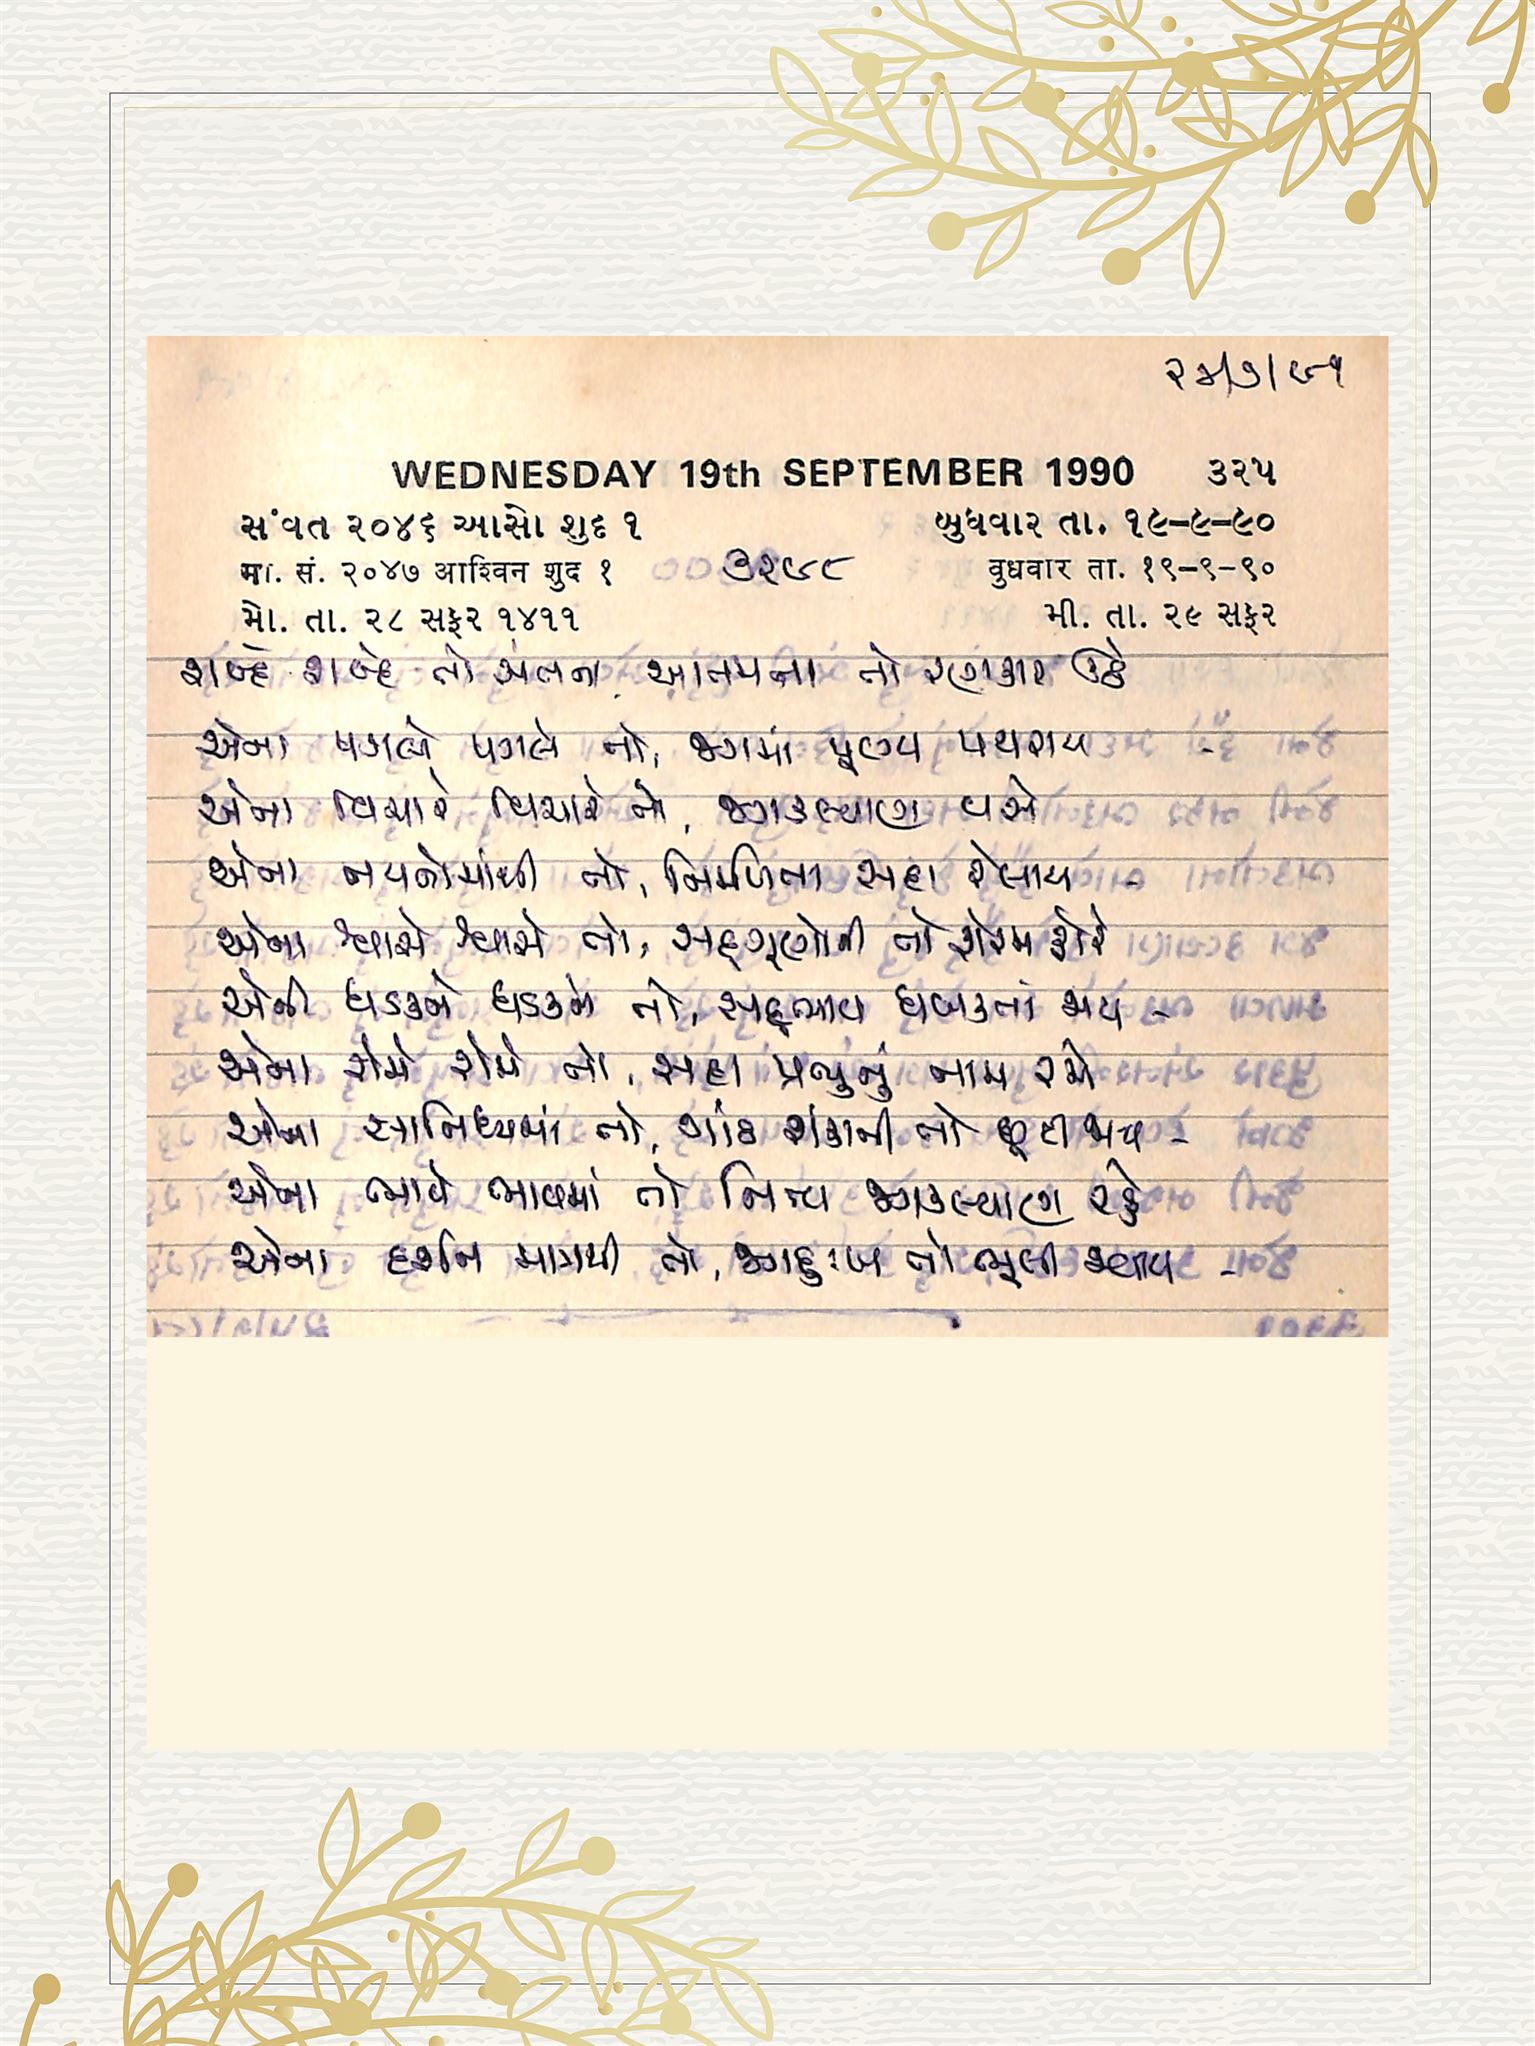 ૨૪/૭/૯૧
WEDNESDAY 19th SEPTEMBER 1990 ૩૨૫
સંવત ૨૦૪૬ આસો શુદ ૧ બુધવાર તા. ૧૯-૯-૯૦
મા. સં. ૨૦૪૭ आश्विन शुद १ ૩૨૯૯ बुधवार ता. १९-९-९०
મો. તા. ૨૮ સફર ૧૪૧૧ મી. તા. ૨૯ સફર
શબ્દે શબ્દે તો સંતના આતમના તો રણકાર ઉઠે
એના પગલે પગલે તો, જગમાં પૂણ્ય પથરાય -
એના વિચારે વિચારે તો, જગકલ્યાણ વસે
એના નયનોમાંથી તો, નિર્મળતા સદા રેલાય -
એના શ્વાસે શ્વાસે તો, સદ્ગૂણોની તો ફોરમ ફોરે
એની ધડકને ધડકને તો, સદ્ભાવ ધબકતાં જાય -
એના રોમે રોમે તો, સદા પ્રભુનું નામ રમે
એના સાનિધ્યમાં તો, ગાંઠ શંકાની તો છૂટી જાય -
એના ભાવે ભાવમાં તો નિત્ય જગકલ્યાણ રહે
એના દર્શન માત્રથી તો, જગદુઃખ તો ભૂલી જવાય -